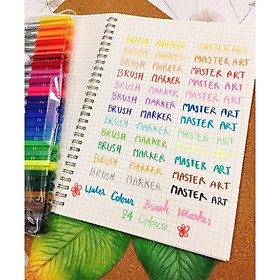 BRUSH MARKER MASTER ART
BRUSH MARKER MASTER ART
BRUSH MARKER MASTER ART
BRUSH MARKER MASTER ART
BRUSH MARKER MASTER ART
BRUSH MARKER MASTER ART
BRUSH MARKER MASTER ART
BRUSH MARKER MASTER ART
BRUSH MARKER MASTER ART
BRUSH MARKER MASTER ART
BRUSH MARKER MASTER ART
Water Colour Brush Marker
24 Colours